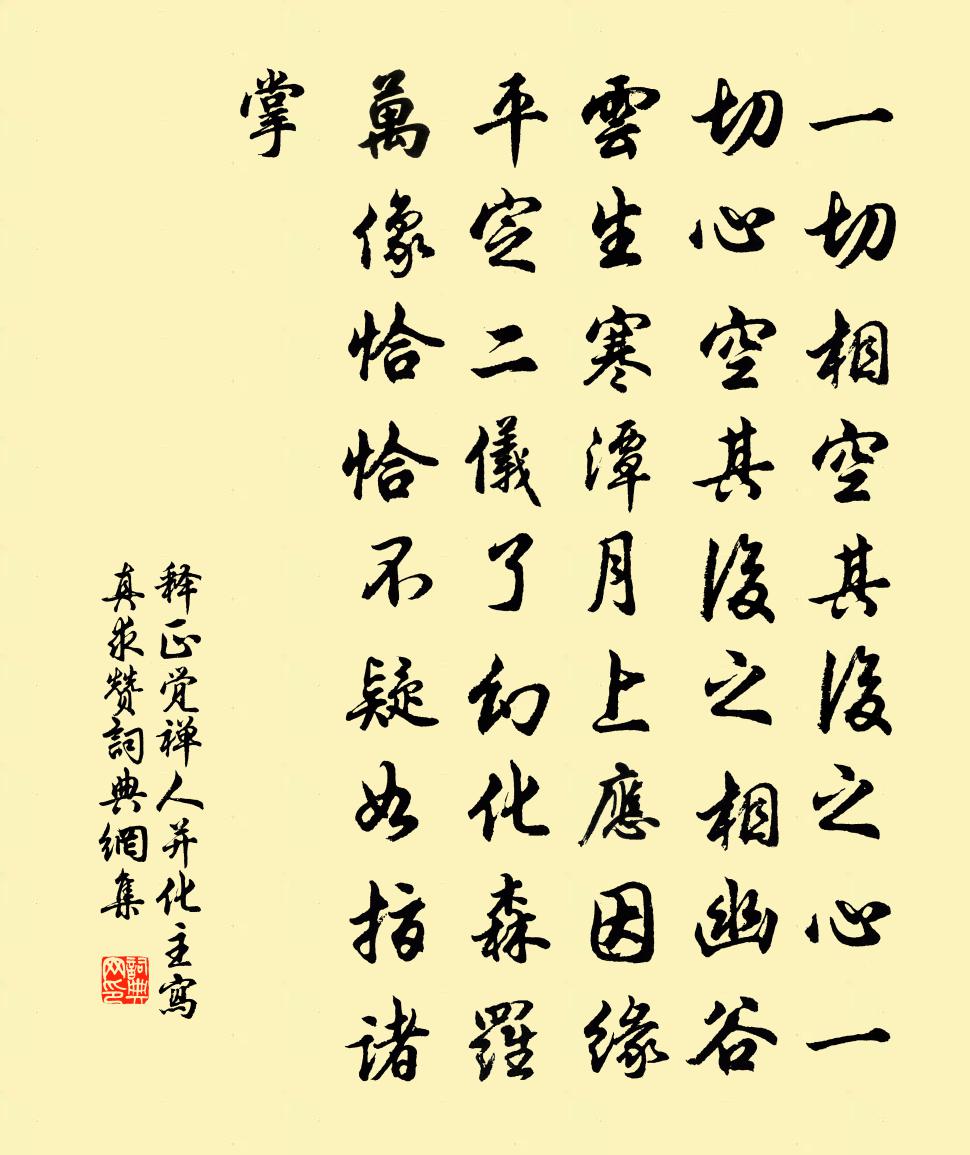 一切相空其後之心一
切心空其後之相幽谷
雲生寒潭月上應因緣
平定二儀了幻化森羅
萬像恰恰不疑如指諸
掌
释正觉禅人并化主寫
真求赞詞典網集
詞典网印